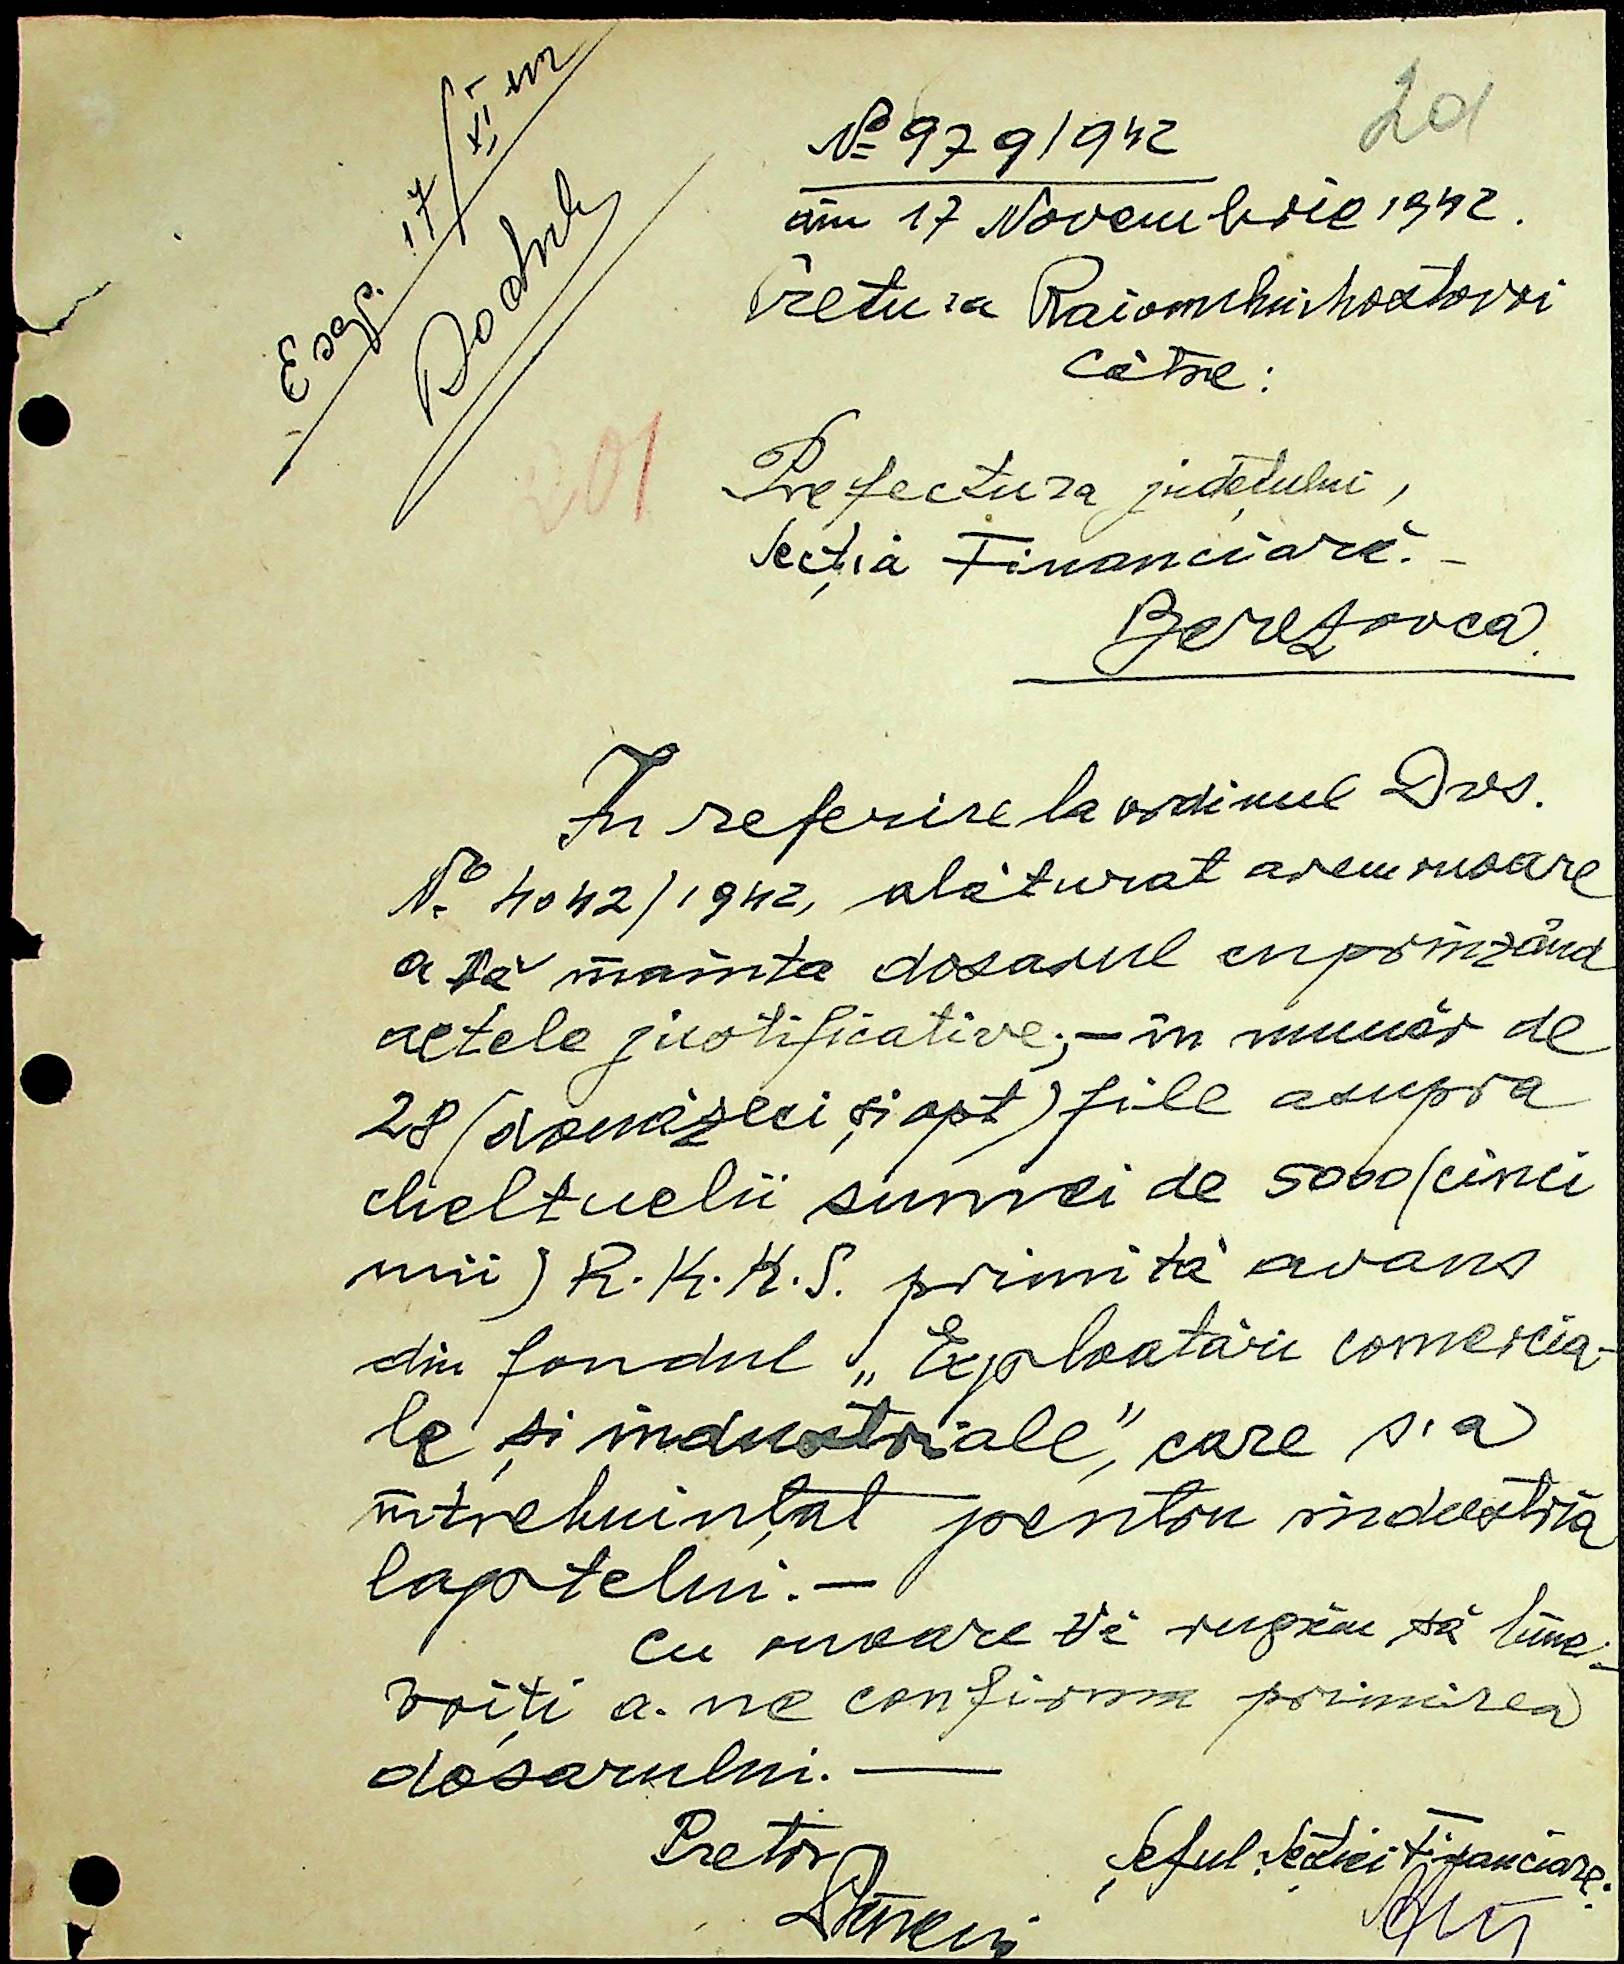 Exp. 17/XI 942
201
No 979/942
din 17 Novembrie 1942.
Pretura Raionului Mostovoi
Către:
Prefectura județului,
Secția Financiară.-
Berezovca.
201
In referire la ordinul Dvs.
No 4042/1942, alăturat avem onoare
a vă înainta dosarul cuprinzând
actele justificative,- în număr de
28 (douăzeci și opt) file asupra
cheltuelii sumei de 5000 (cinci
mii) R.K.K.S. primită avans
din fondul „Exploatării comercia-
le și industriale", care s'a
întrebuințat pentru industria
laptelui.-
Cu onoare Vă rugăm să bine-
voiți a ne confirma primirea
dosarului.-
Pretor
Șeful Secției Financiare.